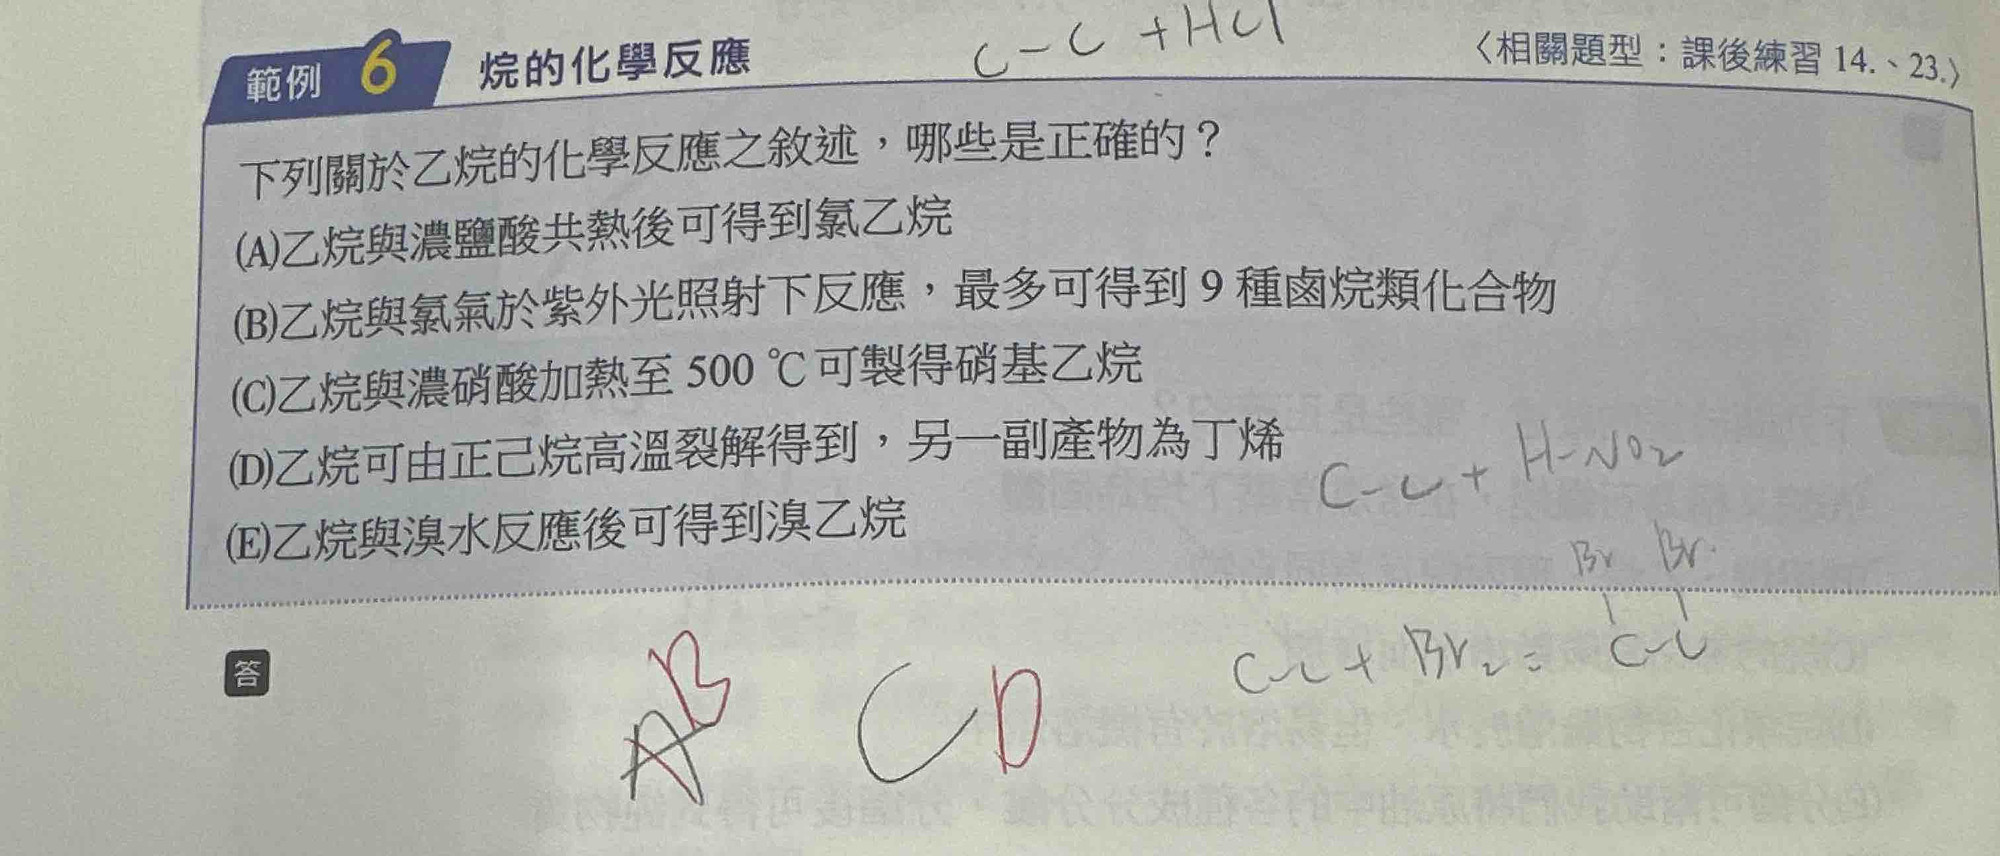 C-C +HCl
範例 6 烷的化學反應 〈相關題型：課後練習 14.、23.〉
下列關於乙烷的化學反應之敘述，哪些是正確的？
(A)乙烷與濃鹽酸共熱後可得到氯乙烷
(B)乙烷與氯氣於紫外光照射下反應，最多可得到 9 種鹵烷類化合物
(C)乙烷與濃硝酸加熱至 500 ℃可製得硝基乙烷
(D)乙烷可由正己烷高溫裂解得到，另一副產物為丁烯
C-C + H-NO2
(E)乙烷與溴水反應後可得到溴乙烷
Br Br
C-C + Br2 = C-C
答
A B C D